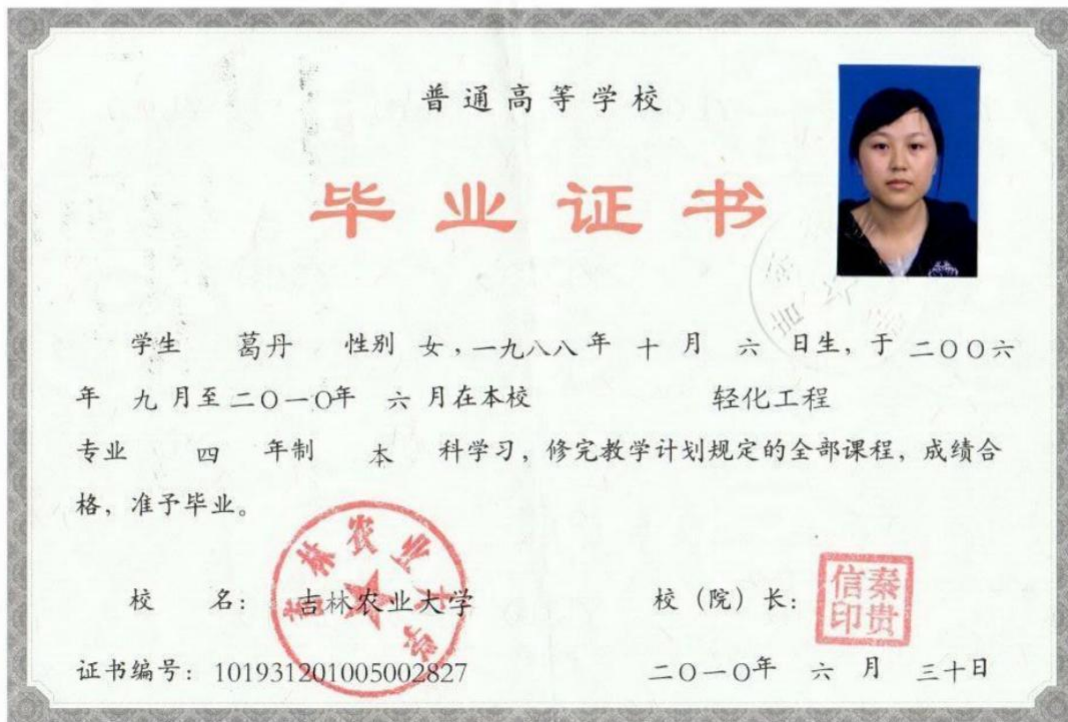 普通高等学校
毕业证书
学生 葛丹 性别 女，一九八八 年 十 月 六 日生，于 二〇〇六
年 九 月至 二〇一〇年 六 月在本校 轻化工程
专业 四 年制 本 科学习，修完教学计划规定的全部课程，成绩合
格，准予毕业。
校 名： 吉林农业大学 校（院）长：
吉林农业大学
秦贵信印
证书编号：101931201005002827 二〇一〇年 六 月 三十日